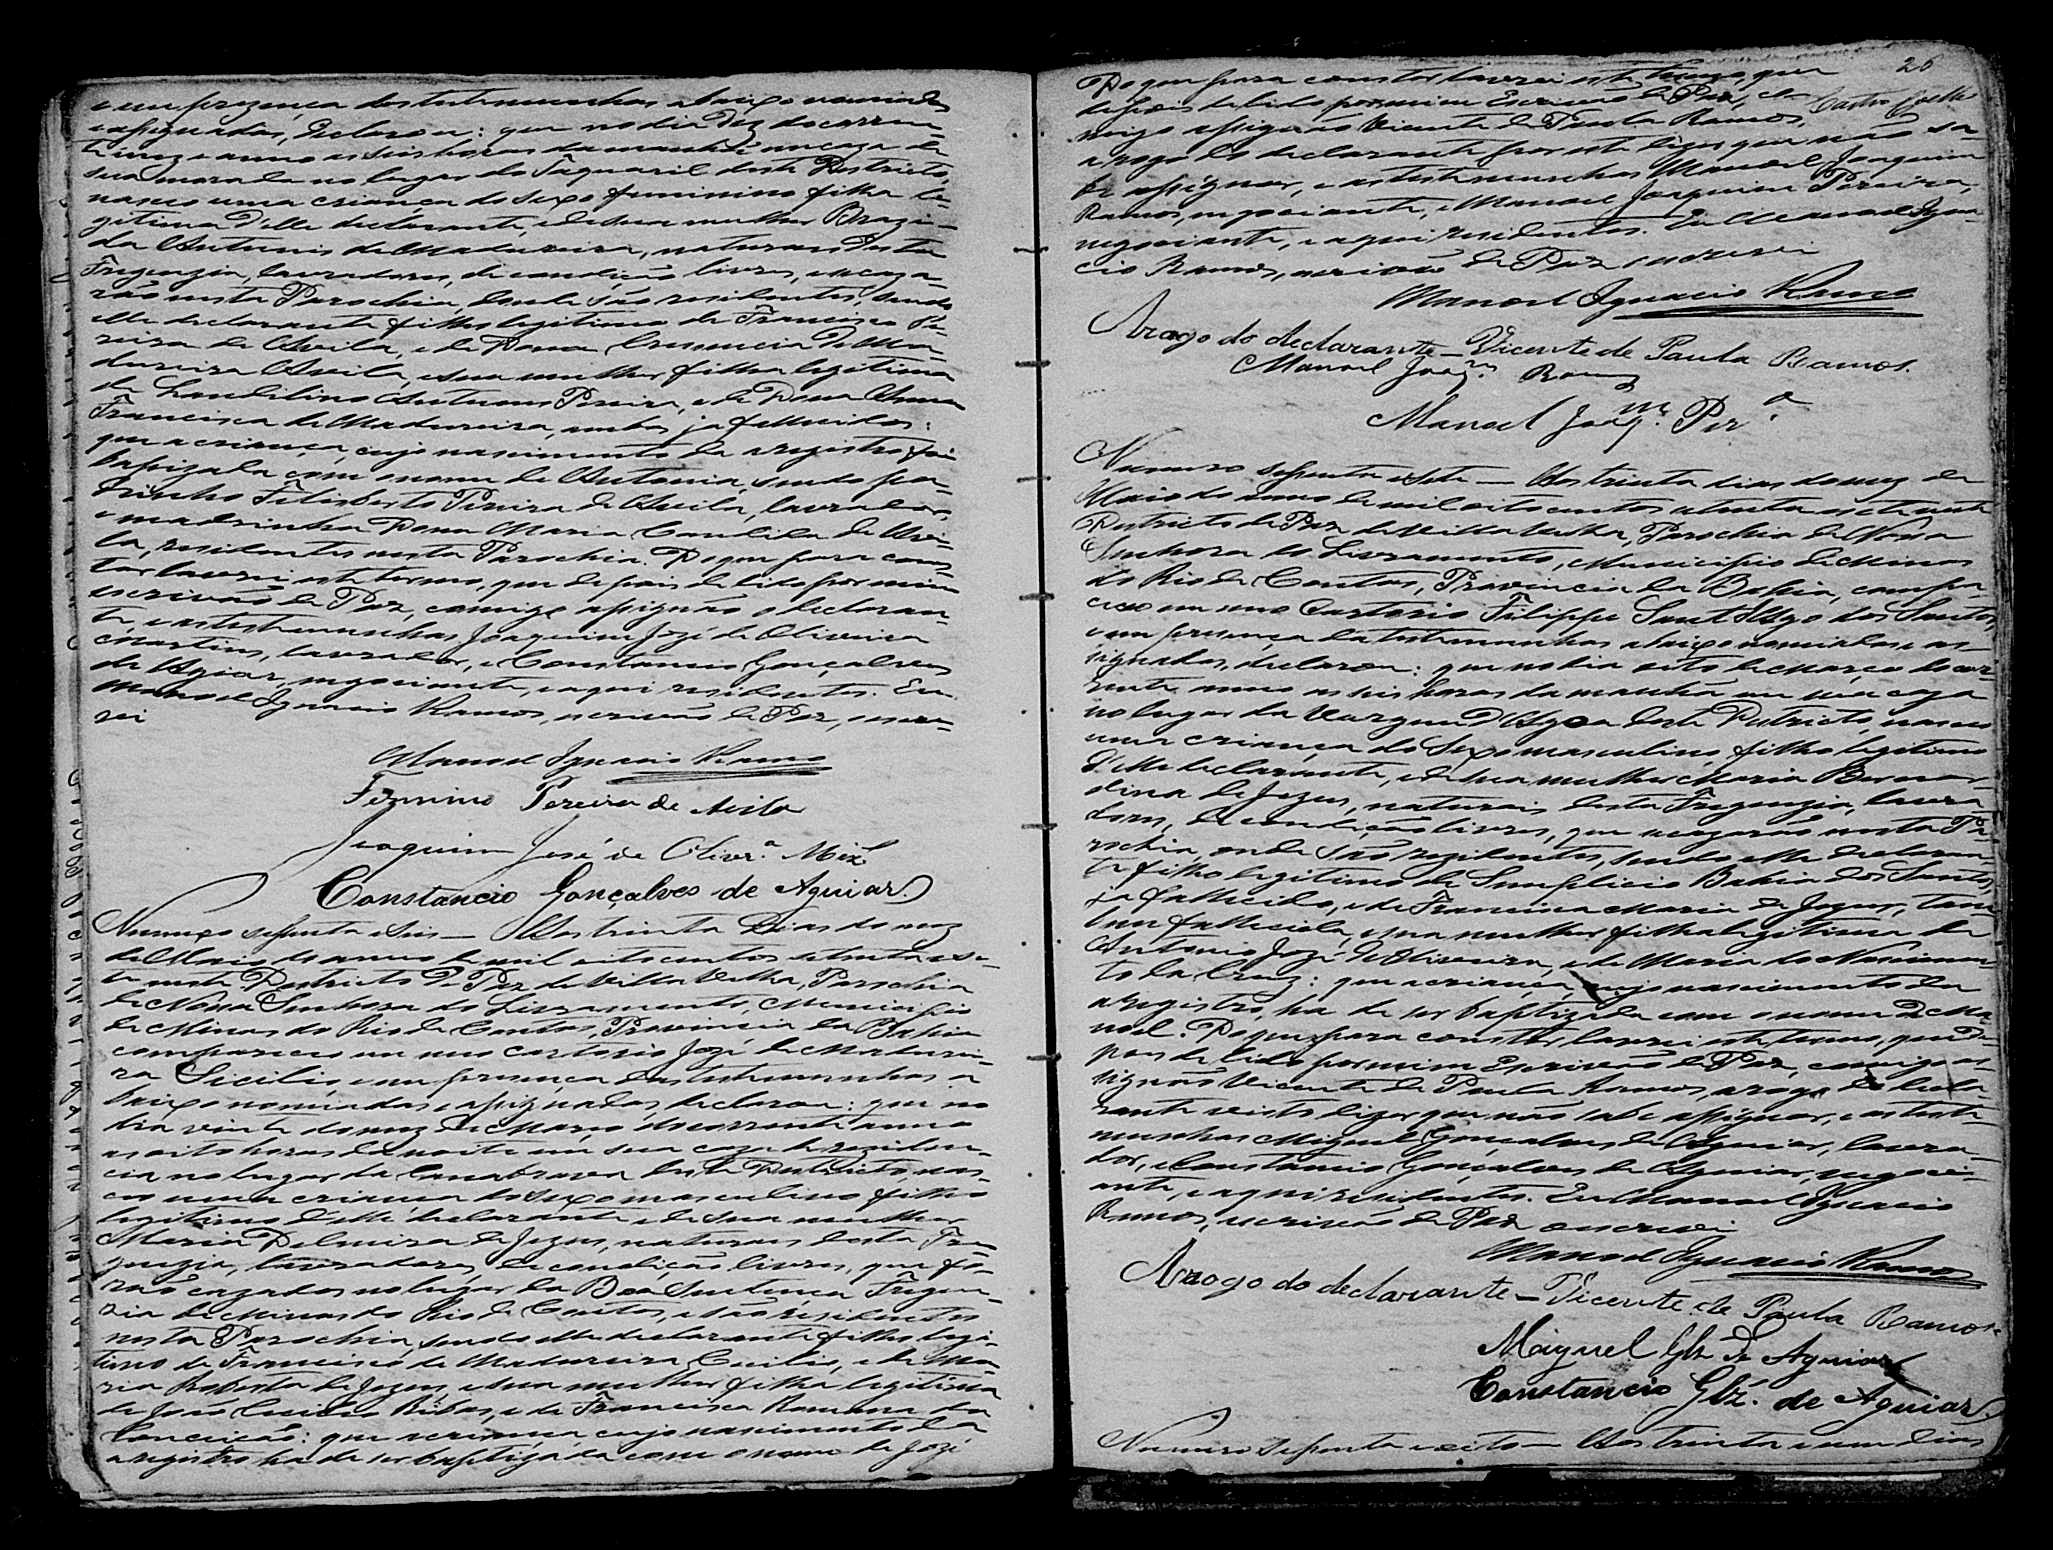 e em prezença das testemunhas abaixo nomiadas
e assignadas, declarou: que no dia Dez do corren-
te mez e anno as seis horas da manhã em caza de
sua morada no lugar do Taquaril deste Destricto,
nasceu uma criança do sexo feminino filha le-
gitima d'elle declarante, e de sua mulher Brazi-
da Antunis de Madureira, naturaes desta
Freguezia, lavradores, de condição livres, e se caza-
rão nesta Parochia, donde são residentes, sendo
elle declarante filho legitimo de Francisco Pe-
reira de Avila, e de Dona Innocencia de Ma-
dureira Avila, e sua mulher filha legitima
de Landilino Antunes Pereira, e de Dona Anna
Francisca de Madureira, ambos ja fallecidos:
que a criança, cujo nascimento da a registro foi
bapizada com o nome de Antonia, sendo pa-
drinho Felisberto Pereira de Avila, lavrador,
e madrinha Dona Maria Candida de Avi-
la, residentes nesta Parochia. Do que para cons-
tar lavrei este termo, que depois de lido por mim
escrivão de Paz, comigo assignão o declaran-
te, e as testemunhas Joaquim José de Oliveira
Martins, lavrador, e Constancio Gonçalves
de Aguiar, negociante, e aqui residentes. Eu
Manoel Ignacio Ramos, escrivão de Paz, escre-
vi
Manoel Ignacio Ramos
Firmino Pereira de Avila
Joaquim José de Olivr.ª
Constancio Gonçalves de Aguiar.
Numero setenta e seis — Aos trinta dias do mez
de Maio do anno de mil oito centos e oitenta e se-
te neste Destricto de Paz de Villa Velha, Parochia
de Nossa Senhora do Livramento, Municipio
de Minas do Rio de Contas, Provincia da Bahia
compareceu em meu cartorio José de Madurei-
ra Cicilio, e em presença das testemunhas a-
baixo nomiadas e assignadas, declarou: que no
dia vinte do mez de Março do corrente anno
as oito horas da noite em sua caza de residen-
cia no lugar da Canabrava deste Destricto, nas-
ceu uma criança do sexo masculino filho
legitimo d'elle declarante e de sua mulher
Maria de Jezus, naturaes desta Fre-
guezia, lavradores, de condição livres, que fo-
rão cazados no lugar da Boa Sentença Fregue-
zia de Minas do Rio de Contas, e são residentes
nesta Parochia, sendo elle declarante filho legi-
timo de Francisco de Madureira Cicilio, e de Ma-
ria Roberta de Jezus, e sua mulher filha legitima
de João Ribas, e de Francisca Romana da
Conceição: que a criança cujo nascimento da
a registro ha de ser baptizada com o nome de José
26
Castro Coelho
Do que para constar lavrei este termo, que
depois de lido por mim Escrivão de Paz, co-
migo assignão Vicente de Paula Ramos,
a rogo do declarante por este dizer que não sa-
be assignar, e as testemunhas Manoel Joaquim
Ramos, negociante, e Manoel Joaquim Pereira,
negociante, e aqui residentes. Eu Manoel Igna-
cio Ramos, escrivão de Paz escrevi
Manoel Ignacio Ramos
Arogo do declarante — Vicente de Paula Ramos.
Manoel Joaqm. Ramos
Manoel Joaqm. Perª.
Numero setenta e sete — Aos trinta dias do mez de
Maio do anno de mil oito centos oitenta e sete neste
Destricto de Paz de Villa Velha, Parochia de Nossa
Senhora do Livramento, Municipio de Minas
do Rio de Contas, Provincia da Bahia, compa-
ceu em meu Cartorio Filippe Sant'Iago dos Santos,
e em presença da testemunhas abaixo nomiadas e as-
signadas, declarou: que no dia oito de Março do cor-
rente anno as seis horas da manhã em sua caza
no lugar da Vargem d'Agoa deste Destricto, nasceu
uma criança do Sexo masculino, filho legitimo
d'elle declarante, e de sua mulher Maria Bernar-
dina de Jezus, naturais desta Freguezia, lavra-
dores, de condição livres, que se cazarão nesta Pa-
rochia, onde são rezidentes, sendo elle declaran-
te filho legitimo de Simplicio Bahia dos Santos,
ja fallecido, e de Francisca Maria de Jezus, tam-
bem fallecida, e sua mulher filha legitima de
Antonio José de Oliveira, e de Maria do Nascimen-
to da Cruz: que a criança, cujo nascimento da
a registro, ha de ser baptizada com o nome de Ma-
noel. Do que para constar lavrei este termo, que de-
pois de lido por mim Escrivão de Paz, comigo as-
signão Vicente de Paula Ramos, a rogo do decla-
rante visto dizer que não sabe assignar, e as teste-
munhas Miguel Gonçalves de Aguiar, lavra-
dor, e Constancio Gonçalves de Aguiar, negoci-
ante, e aqui residentes. Eu Manoel Ignacio
Ramos, escrivão de Paz o escrevi
Manoel Ignacio Ramos
Arogo do declarante — Vicente de Paula Ramos.
Miguel Glz de Aguiar
Constancio Glz. de Aguiar.
Numero setenta e oito — Aos trinta e um dias